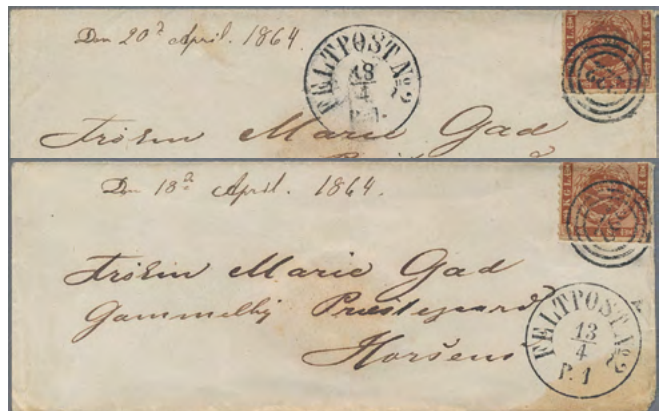 Den 20de April. 1864.
FELTPOST No. 2
18
4
Frøken Marie Gad
Den 18de April. 1864.
KGL
Frøken Marie Gad
Gammelby Præstegaard
Horsens
FELTPOST No. 2
13
4
P. 1